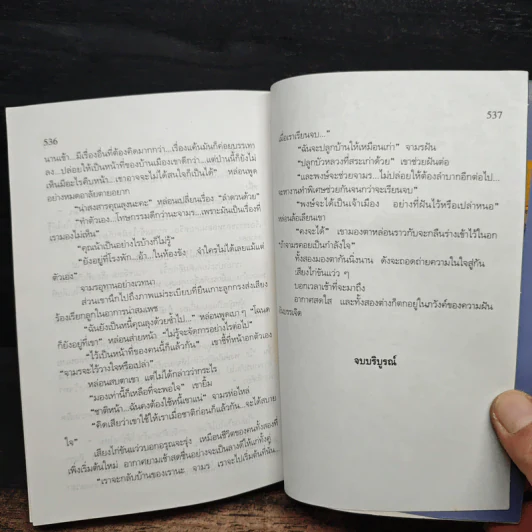 536
นานเข้า...มีเรื่องอื่นที่ต้องคิดมากกว่า...เรื่องแค้นมันก็ค่อยบรรเทา
ลง...ปล่อยให้เป็นหน้าที่ของบ้านเมืองเขาดีกว่า...แต่ป่านนี้ก็ยังไม่
เห็นมีอะไรคืบหน้า...เขาอาจจะไม่ได้สนใจก็เป็นได้” หล่อนพูด
อย่างหมดอาลัยตายอยาก
“น่าสงสารคุณลุงนะคะ” หล่อนเปลี่ยนเรื่อง “ลำดวนด้วย”
“ทำตัวเอง...โทษกรรมดีกว่านะจามร...เพราะมันเป็นเรื่องที่
เรามองไม่เห็น”
“คุณน้าเป็นอย่างไรบ้างก็ไม่รู้”
“ยังอยู่ที่โรงพัก...อ้า...ในห้องขัง จำใครไม่ได้เลยแม้แต่
ตัวเอง”
จามรอุทานอย่างเวทนา
ส่วนเขานึกไปถึงภาพแม่ระเบียบที่ยืนเกาะลูกกรงส่งเสียง
ร้องเรียกลูกในอาการน่าสมเพช
“ฉันยังเป็นหนี้คุณลุงด้วยซ้ำไป...” หล่อนพูดเบาๆ “โฉนด
ก็ยังอยู่ที่เขา” หล่อนส่ายหน้า “ไม่รู้จะจัดการอย่างไรต่อไป”
“ไว้เป็นหน้าที่ของคนนี้ก็แล้วกัน” เขาชี้ที่หน้าอกตัวเอง
“จามรจะไว้วางใจหรือเปล่า”
หล่อนสบตาเขา แต่ไม่ได้กล่าวว่ากระไร
“มองเท่านี้ก็เหลือที่จะพอใจ” เขายิ้ม
“ชาติหน้า...ฉันคงต้องใช้หนี้เขาแน่” จามรห่อไหล่
“คิดเสียว่าเขาใช้ให้เราเมื่อชาติก่อนก็แล้วกัน...จะได้สบาย
ใจ”
เสียงไก่ขันแว่วบอกอรุณจะรุ่ง เหมือนชีวิตของคนทั้งสองที่
เพิ่งเริ่มต้นใหม่ อากาศยามเช้าสดชื่นอย่างจะเป็นลางดีให้แก่ทั้งคู่
“เราจะกลับบ้านของเรานะ จามร เราจะไปเริ่มต้นที่นั่น...
537
เมื่อเราเรียนจบ...”
“ฉันจะปลูกบ้านให้เหมือนเก่า” จามรฝัน
“ปลูกบัวหลวงที่สระเก่าด้วย” เขาช่วยฝันต่อ
“และพงษ์จะช่วยจามร...ไม่ปล่อยให้ต้องลำบากอีกต่อไป...
จะหางานทำพิเศษช่วยกันจนกว่าจะเรียนจบ”
“พงษ์จะได้เป็นเจ้าเมือง อย่างที่ฝันไว้หรือเปล่าหนอ”
หล่อนล้อเลียนเขา
“คงจะได้” เขามองตาหล่อนราวกับจะกลืนร่างเข้าไว้ในอก
“ถ้าจามรคอยเป็นกำลังใจ”
ทั้งสองมองตากันนิ่งนาน ดังจะถอดถ่ายความในใจสู่กัน
เสียงไก่ขันแว่ว ๆ
บอกเวลาเช้าที่จะมาถึง
อากาศสดใส และทั้งสองต่างก็ตกอยู่ในภวังค์ของความฝัน
อันบรรเจิด
จบบริบูรณ์